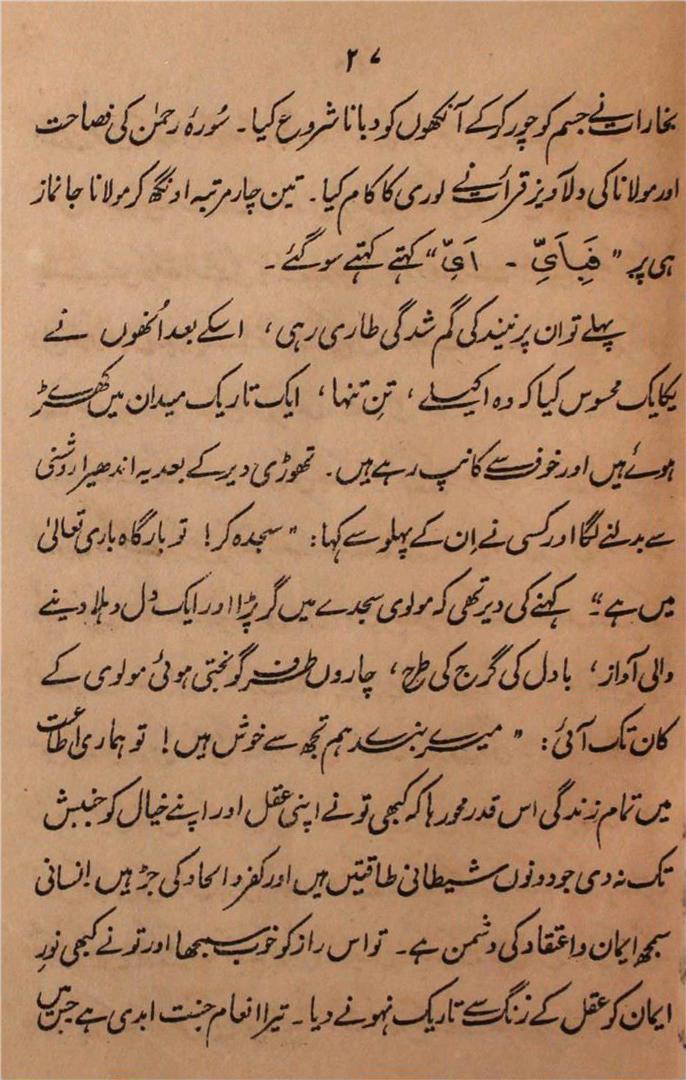 ۲۷
بخارات نے جسم کو چور کر کے آنکھوں کو دبانا شروع کیا۔ سُورۂ رحمٰن کی فصاحت
اور مولانا کی دلآویز قرأت نے لوری کا کام کیا۔ تین چار مرتبہ اونگھ کر مولانا جانماز
ہی پر "فَبِاَیِّ - اَیِّ" کہتے کہتے سو گئے۔
پہلے تو ان پر نیند کی گم شدگی طاری رہی، اسکے بعد اُنھوں نے
یکایک محسوس کیا کہ وہ اکیلے، تنِ تنہا، ایک تاریک میدان میں کھڑے
ہوئے ہیں اور خوف سے کانپ رہے ہیں۔ تھوڑی دیر کے بعد یہ اندھیرا روشنی
سے بدلنے لگا اور کسی نے اِن کے پہلو سے کہا: "سجدہ کر! تو بارگاہ باری تعالیٰ
میں ہے"۔ کہنے کی دیر تھی کہ مولوی سجدے میں گر پڑا اور ایک دل دہلا دینے
والی آواز، بادل کی گرج کی طرح، چاروں طرف گونجتی ہوئی مولوی کے
کان تک آئی: "میرے بندے ہم تجھ سے خوش ہیں! تو ہماری اطاعت
میں تمام زندگی اس قدر محو رہا کہ کبھی تو نے اپنی عقل اور اپنے خیال کو جنبش
تک نہ دی جو دونوں شیطانی طاقتیں ہیں اور کفر و الحاد کی جڑ ہیں۔ انسانی
سمجھ ایمان و اعتقاد کی دشمن ہے۔ تو اس راز کو خوب سمجھا اور تو نے کبھی نورِ
ایمان کو عقل کے زنگ سے تاریک نہونے دیا۔ تیرا انعام جنت ابدی ہے جس میں